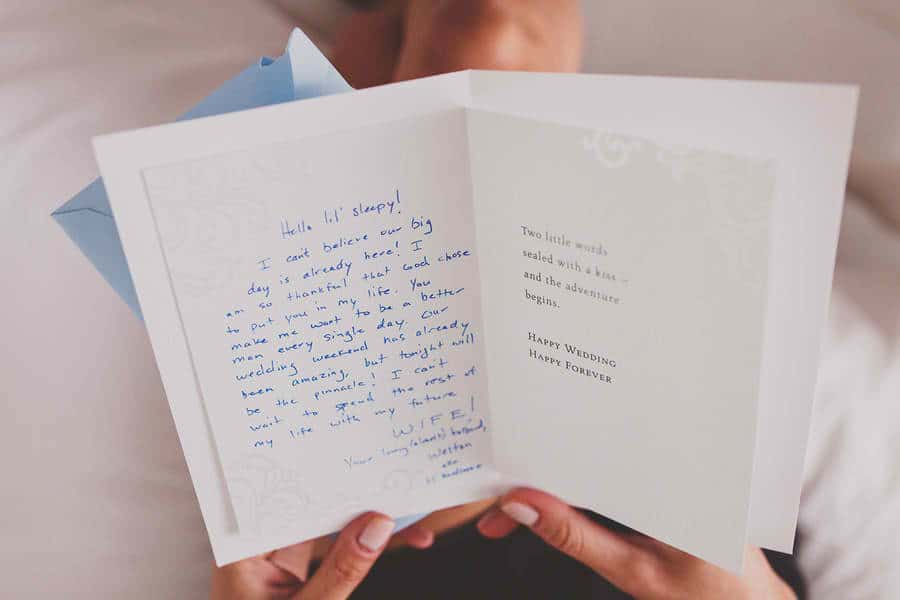 Hello lil' sleepy!
I can't believe our big
day is already here! I
am so thankful that God chose
to put you in my life. You
make me want to be a better
man every single day. Our
wedding weekend has already
been amazing, but tonight will
be the pinnacle! I can't
wait to spend the rest of
my life with my future
WIFE!
Your loving (almost) husband,
Weston
aka
Two little words
sealed with a kiss –
and the adventure
begins.
HAPPY WEDDING
HAPPY FOREVER